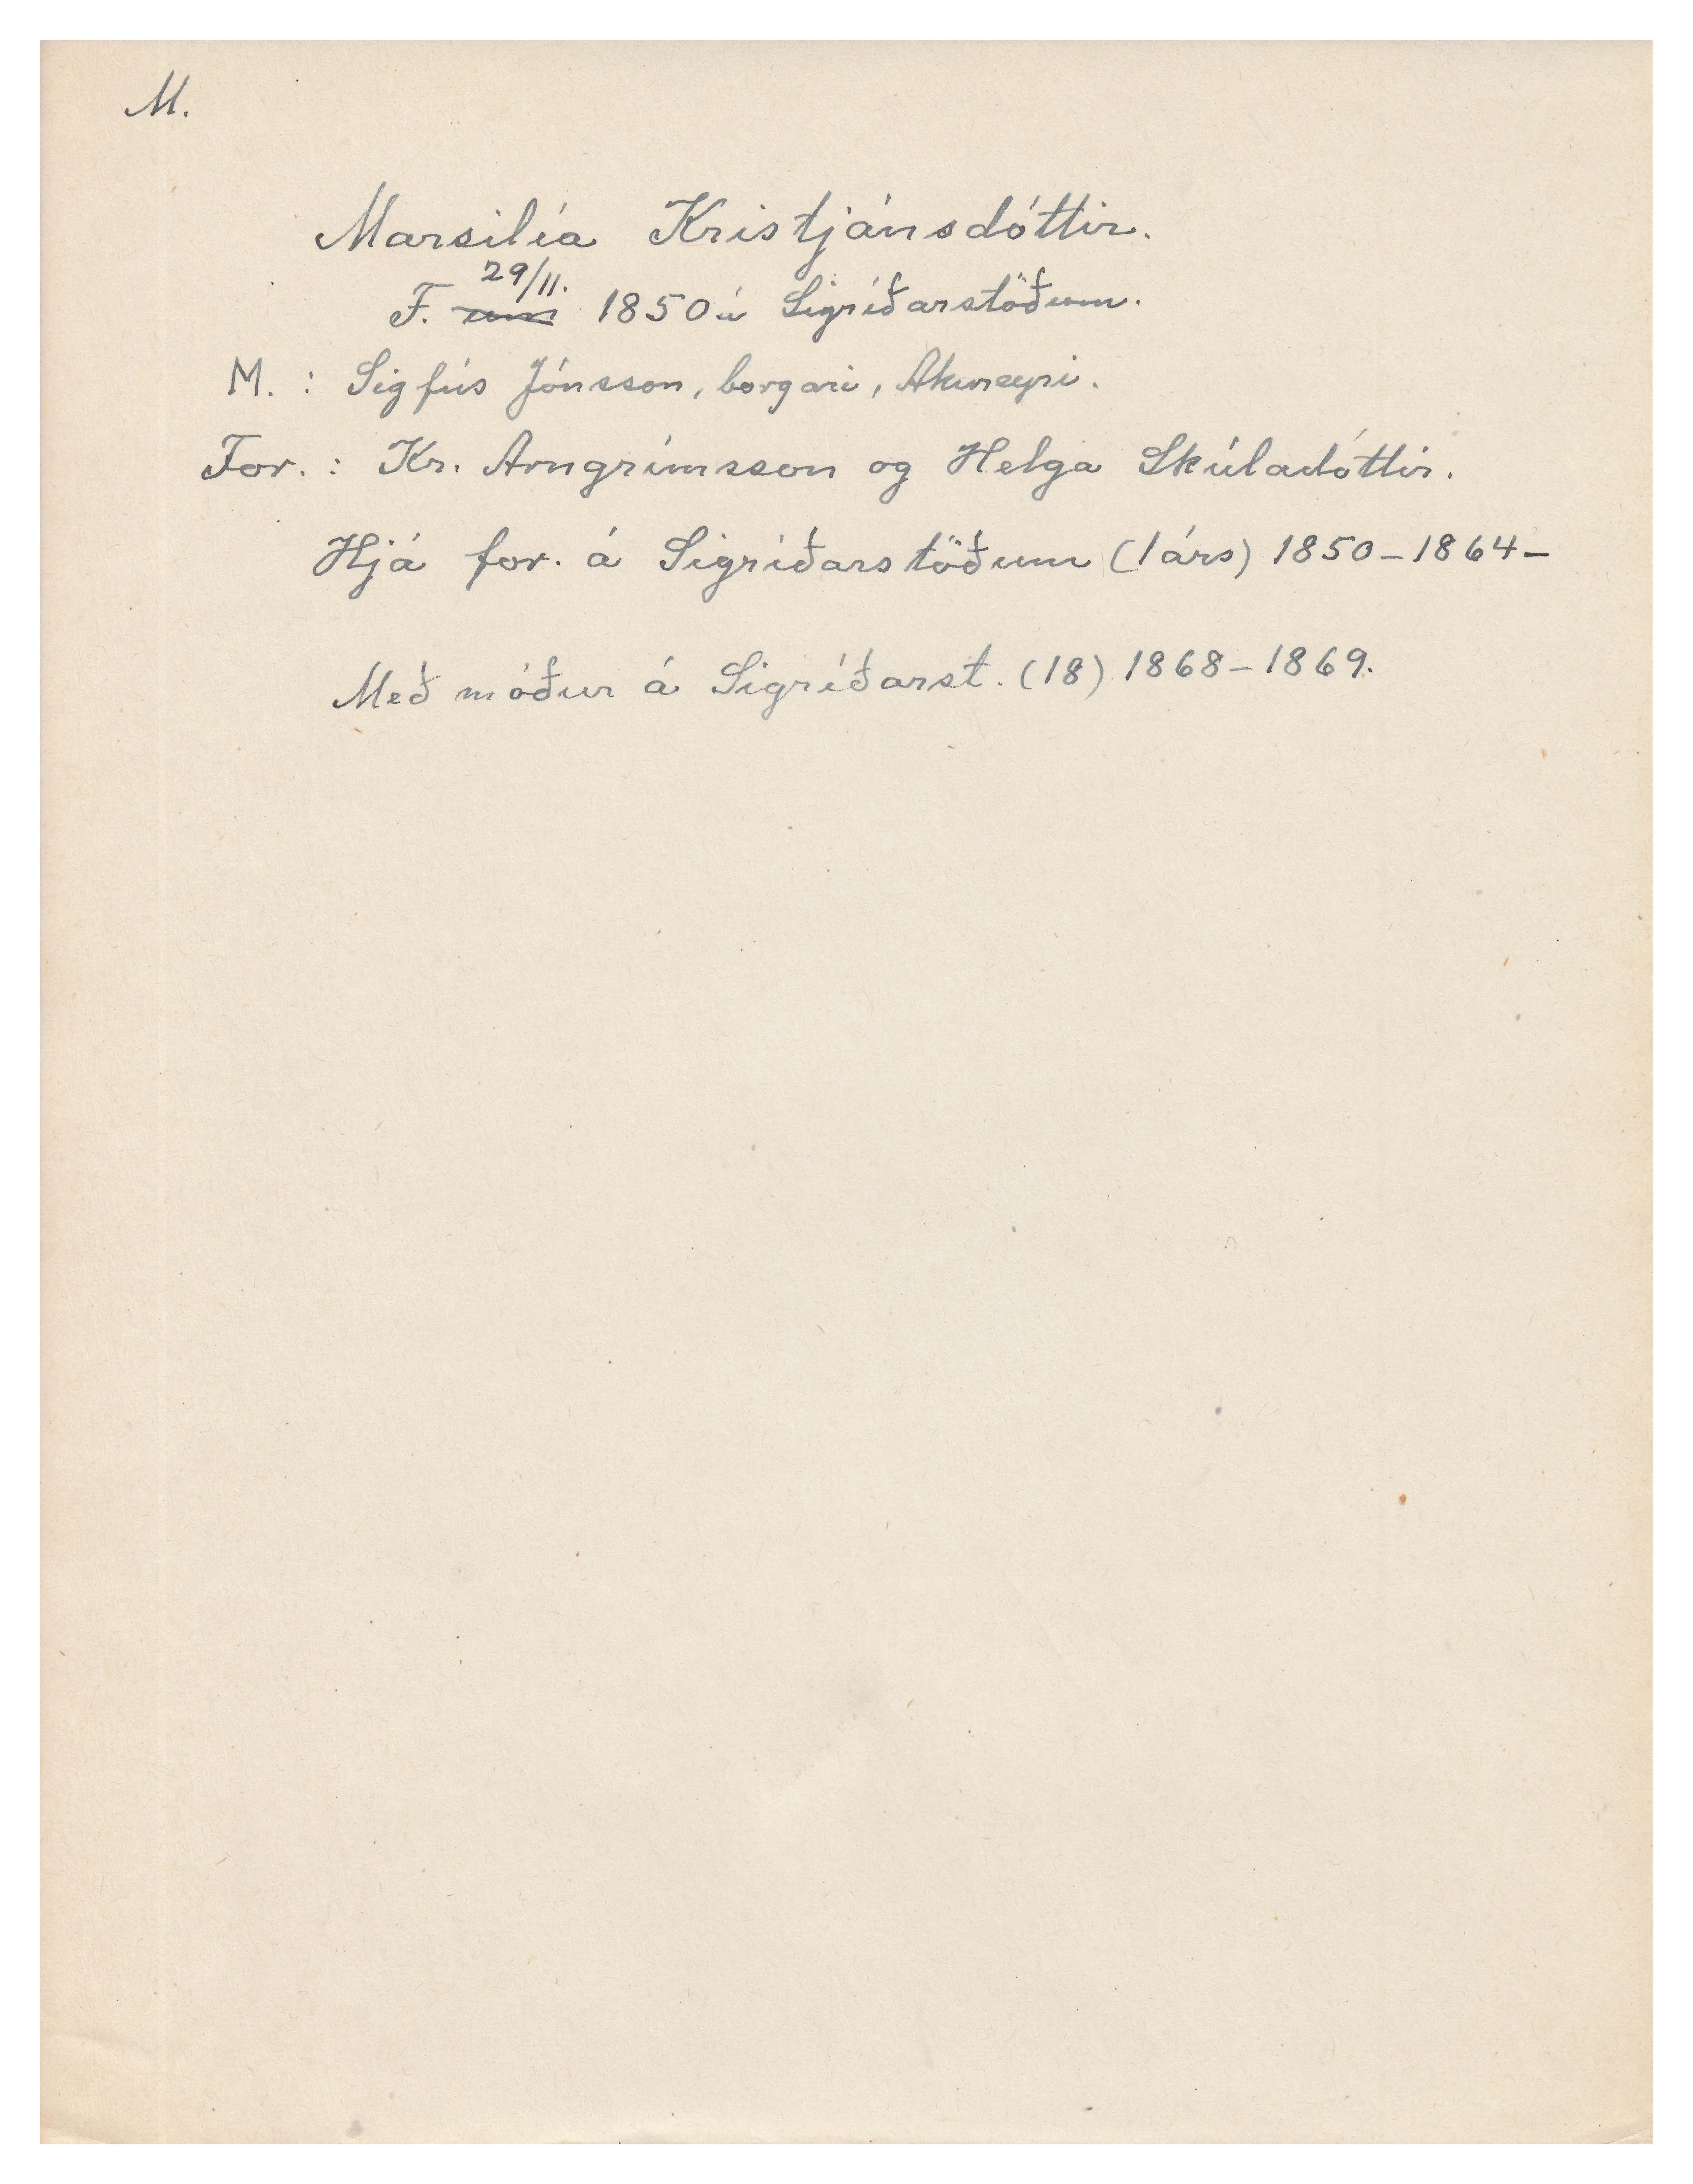 M.
Marsilía Kristjánsdóttir.
29/11.
F. um 1850 á Sigríðarstöðum.
M. : Sigfús Jónsson, borgari, Akureyri.
For. : Kr. Arngrímsson og Helga Skúladóttir.
Hjá for. á Sigríðarstöðum (1árs) 1850-1864-
Með móður á Sigríðarst. (18) 1868-1869.